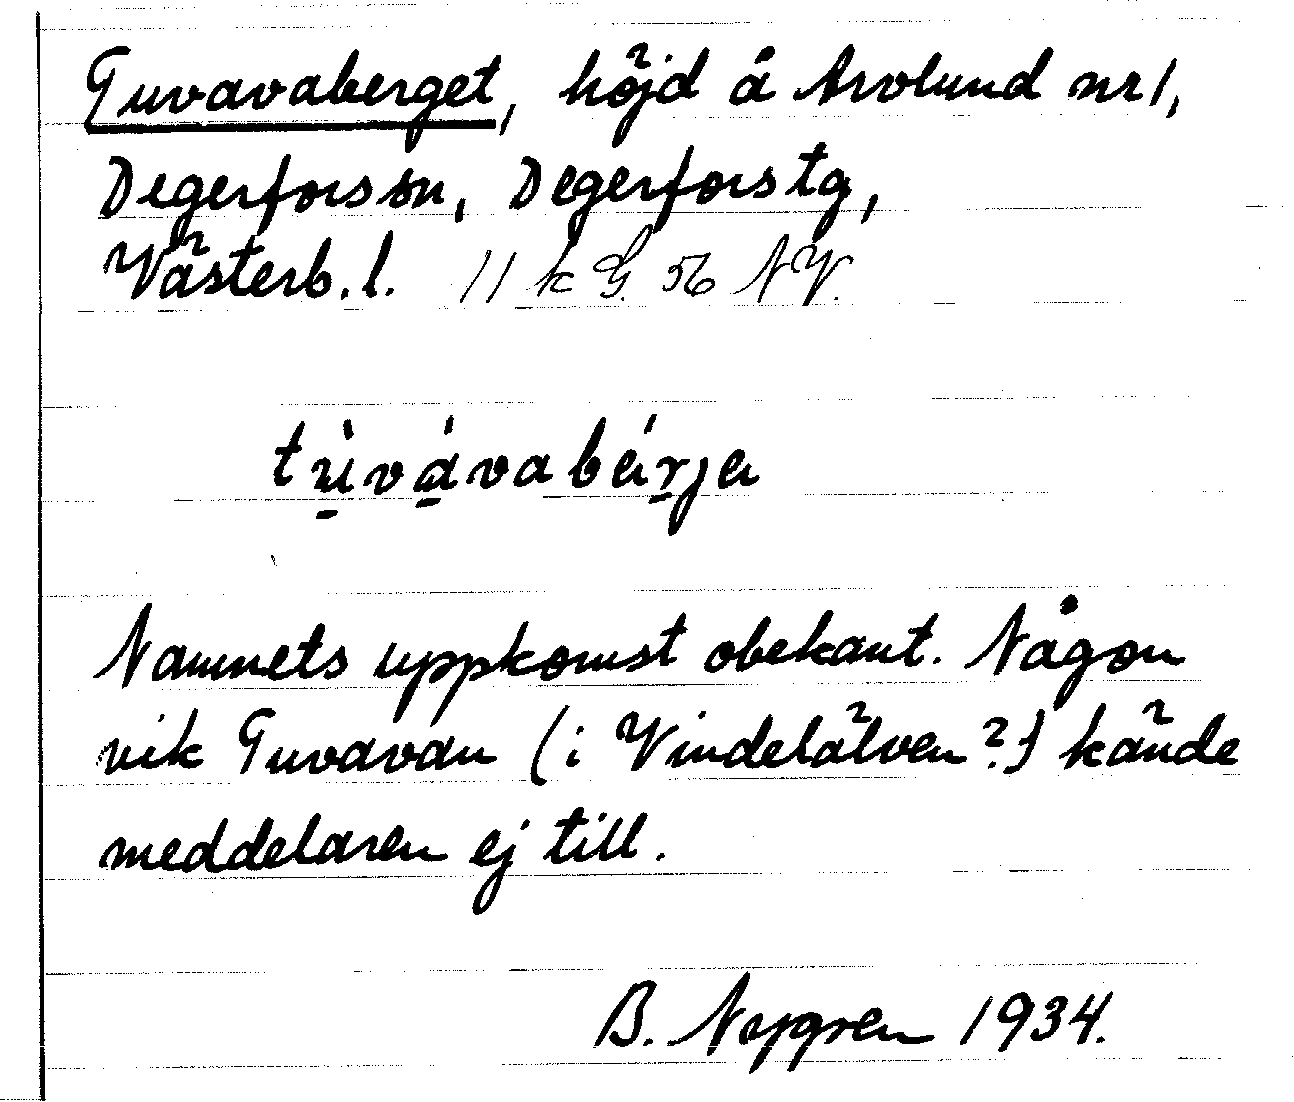 Tuvavaberget, höjd å Arvlund nr 1,
Degerfors sn, Degerfors tg,
Västerb. l. 11 k G. 56 NV.
tùvávabárja
Namnets uppkomst obekant. Någon
vik Tuvavan (i Vindelälven?) kände
meddelaren ej till.
B. Nygren 1934.